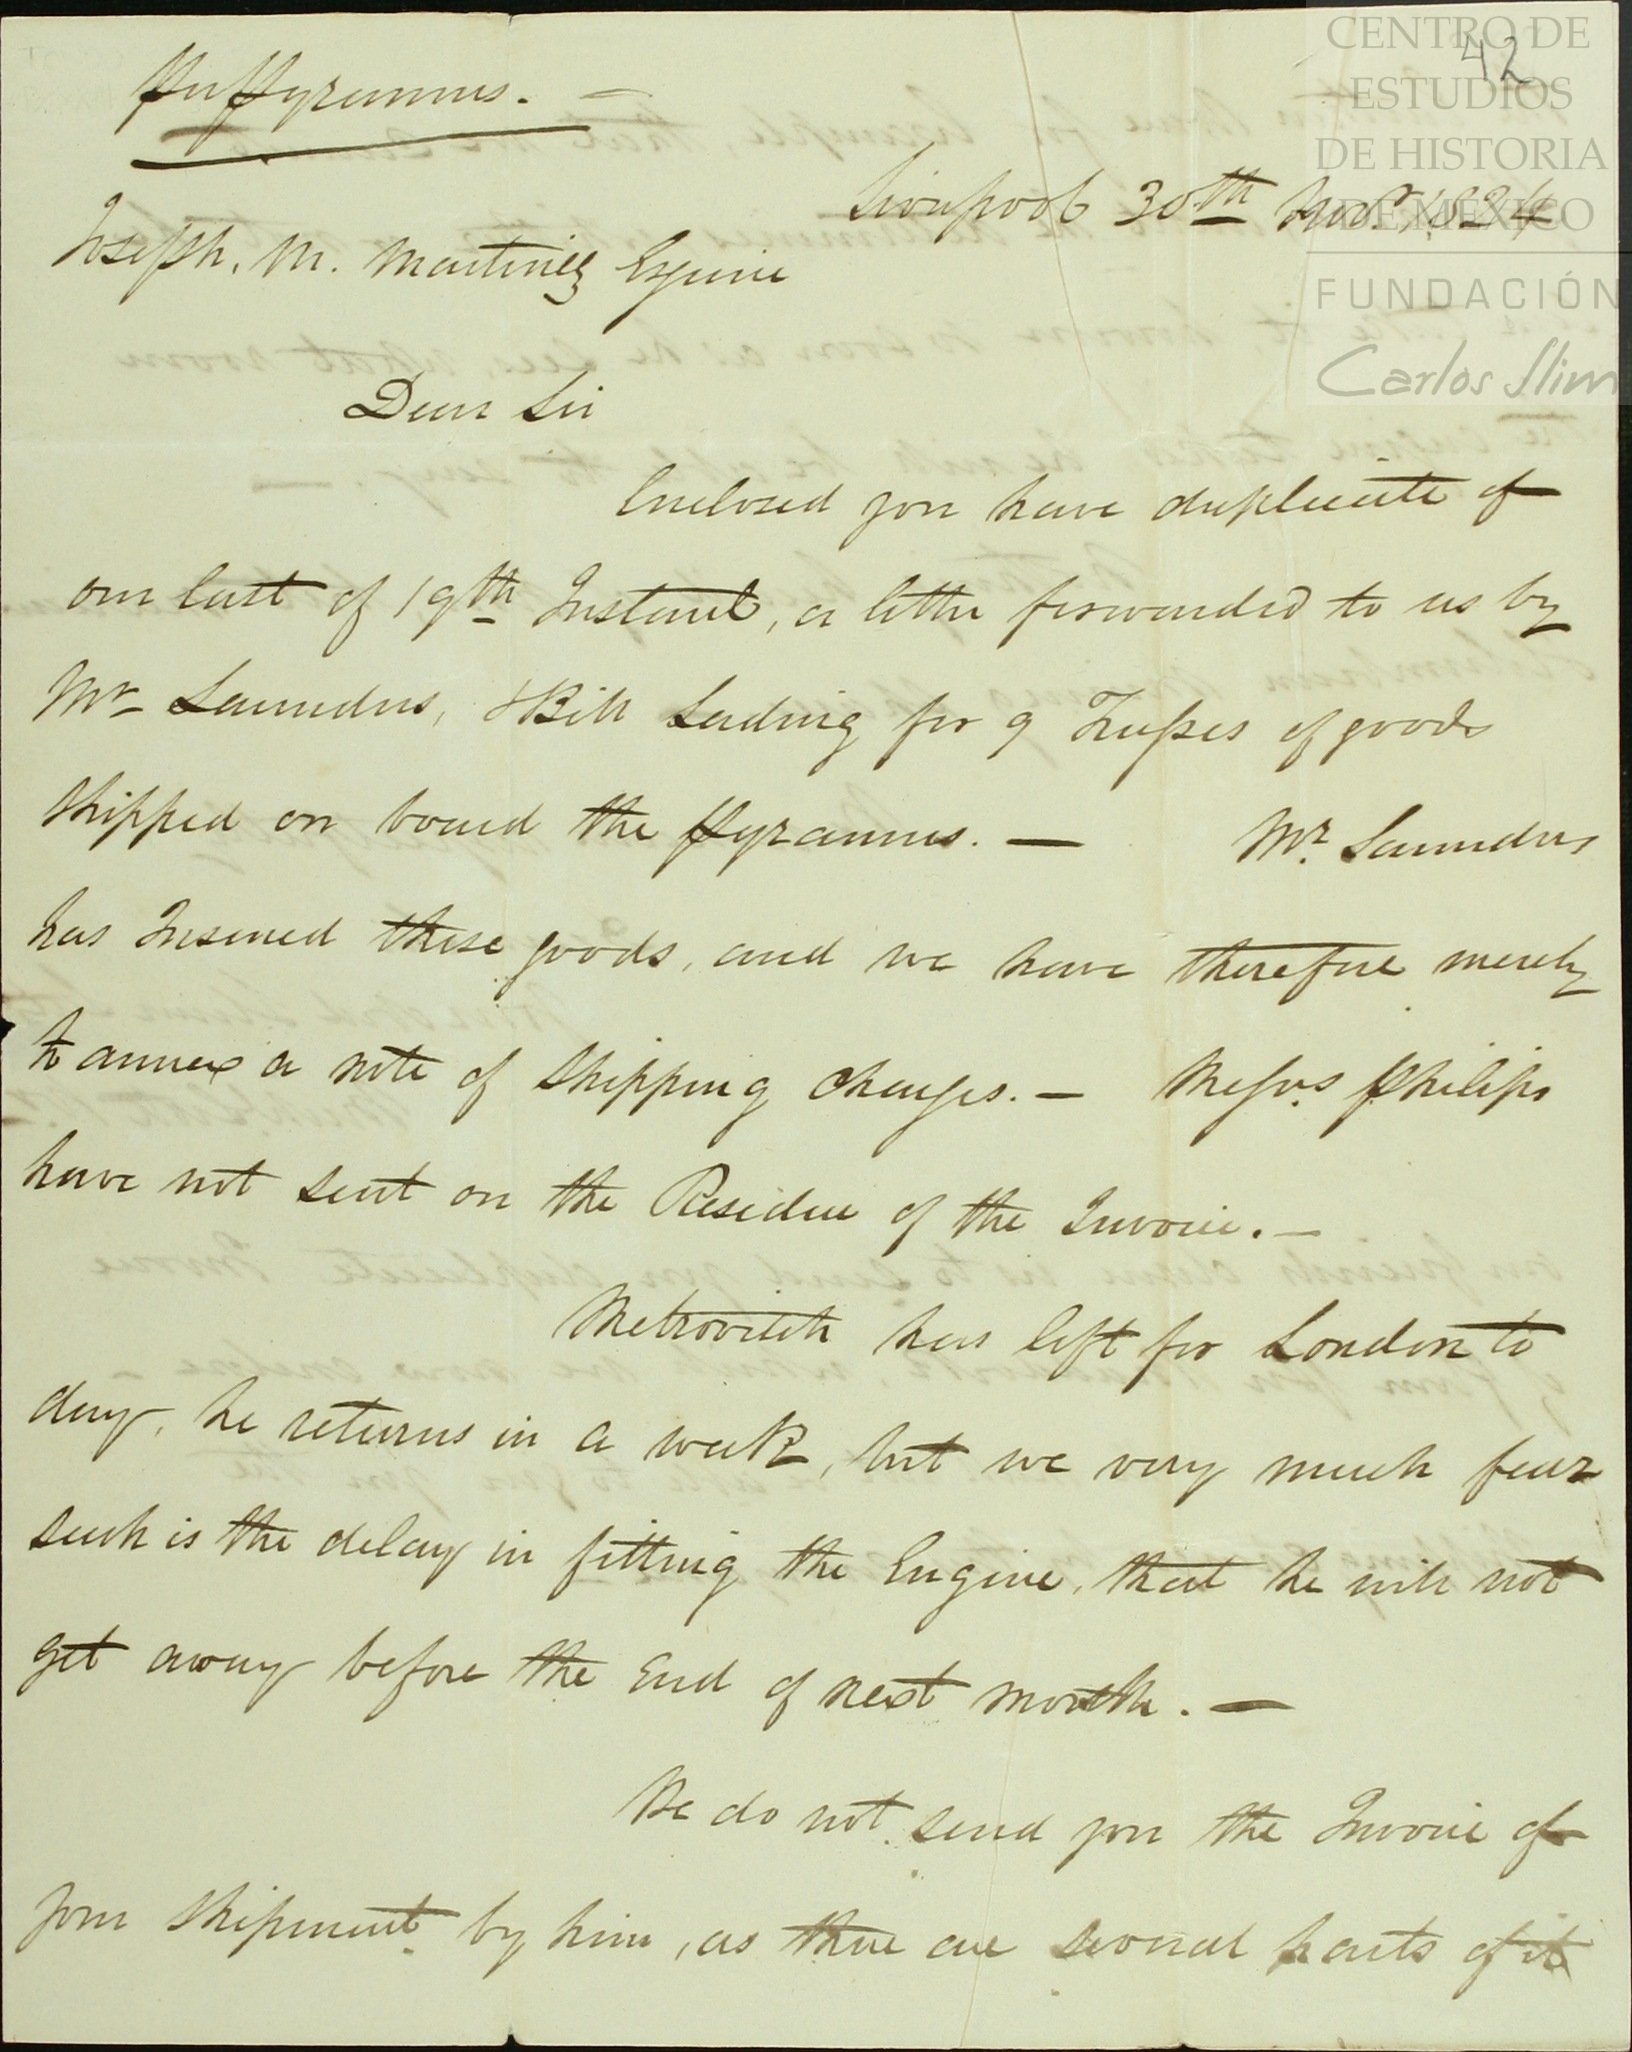 CENTRO DE
ESTUDIOS
DE HISTORIA
DE MÉXICO
FUNDACIÓN
Carlos Slim
42
per Pyramus. —
Liverpool 30th Novr. 1824
Joseph. M. Martinez Esquire
Dear Sir
Enclosed you have duplicate of
our last of 19th Instant, a letter forwarded to us by
Mr Saunders, & Bill Lading for 9 Trusses of goods
shipped on board the Pyramus. — Mr. Saunders
has Insured these goods, and we have therefore merely
to annex a note of Shipping Charges. — Messrs. Philips
have not sent on the Residue of the Invoice. —
Metrovitch has left for London to
day, he returns in a week, but we very much fear
such is the delay in fitting the Engine, that he will not
get away before the End of next month. —
We do not send you the Invoice of
your shipment by him, as there are several parts of it